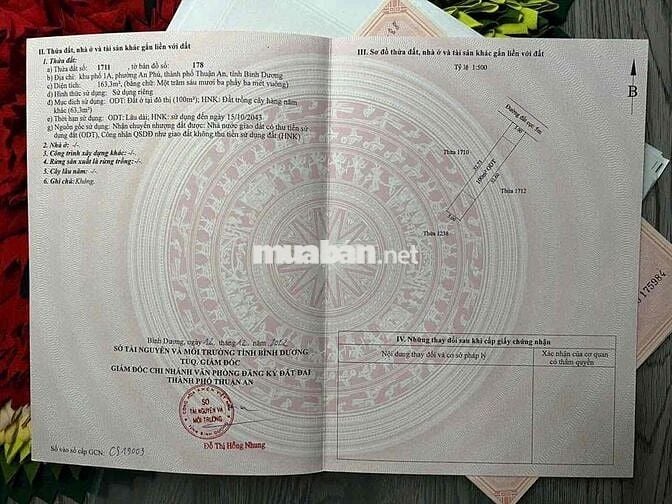 II. Thửa đất, nhà ở và tài sản khác gắn liền với đất
1. Thửa đất:
a) Thửa đất số: 1711 , tờ bản đồ số: 178
b) Địa chỉ: khu phố 1A, phường An Phú, thành phố Thuận An, tỉnh Bình Dương
c) Diện tích: 163,3m², (bằng chữ: Một trăm sáu mươi ba phẩy ba mét vuông)
d) Hình thức sử dụng: Sử dụng riêng
đ) Mục đích sử dụng: ODT: Đất ở tại đô thị (100m²); HNK: Đất trồng cây hàng năm
khác (63,3m²)
e) Thời hạn sử dụng: ODT: Lâu dài; HNK: sử dụng đến ngày 15/10/2043
g) Nguồn gốc sử dụng: Nhận chuyển nhượng đất được Nhà nước giao đất có thu tiền sử
dụng đất (ODT), Công nhận QSDĐ như giao đất không thu tiền sử dụng đất (HNK)
2. Nhà ở: -/-
3. Công trình xây dựng khác: -/-
4. Rừng sản xuất là rừng trồng: -/-
5. Cây lâu năm: -/-
6. Ghi chú: Không.
Bình Dương, ngày 12 tháng 12 năm
SỞ TÀI NGUYÊN VÀ MÔI TRƯỜNG TỈNH BÌNH DƯƠNG
TUQ. GIÁM ĐỐC
GIÁM ĐỐC CHI NHÁNH VĂN PHÒNG ĐĂNG KÝ ĐẤT ĐAI
THÀNH PHỐ THUẬN AN
SỞ
TÀI NGUYÊN VÀ
MÔI TRƯỜNG
Đỗ Thị Hồng Nhung
Số vào sổ cấp GCN: CS19003
III. Sơ đồ thửa đất, nhà ở và tài sản khác gắn liền với đất
Tỷ lệ 1:500
B
Đường đất cục 5m
5.00
Thửa 1710
100m² ODT
Thửa 1712
5.00
Thửa 1238
muaban.net
IV. Những thay đổi sau khi cấp giấy chứng nhận
Nội dung thay đổi và cơ sở pháp lý
Xác nhận của cơ quan
có thẩm quyền
175984